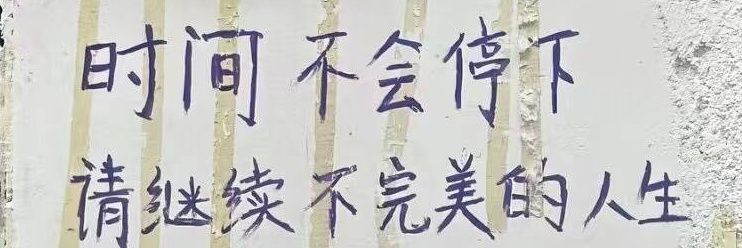 时间不会停下
请继续不完美的人生